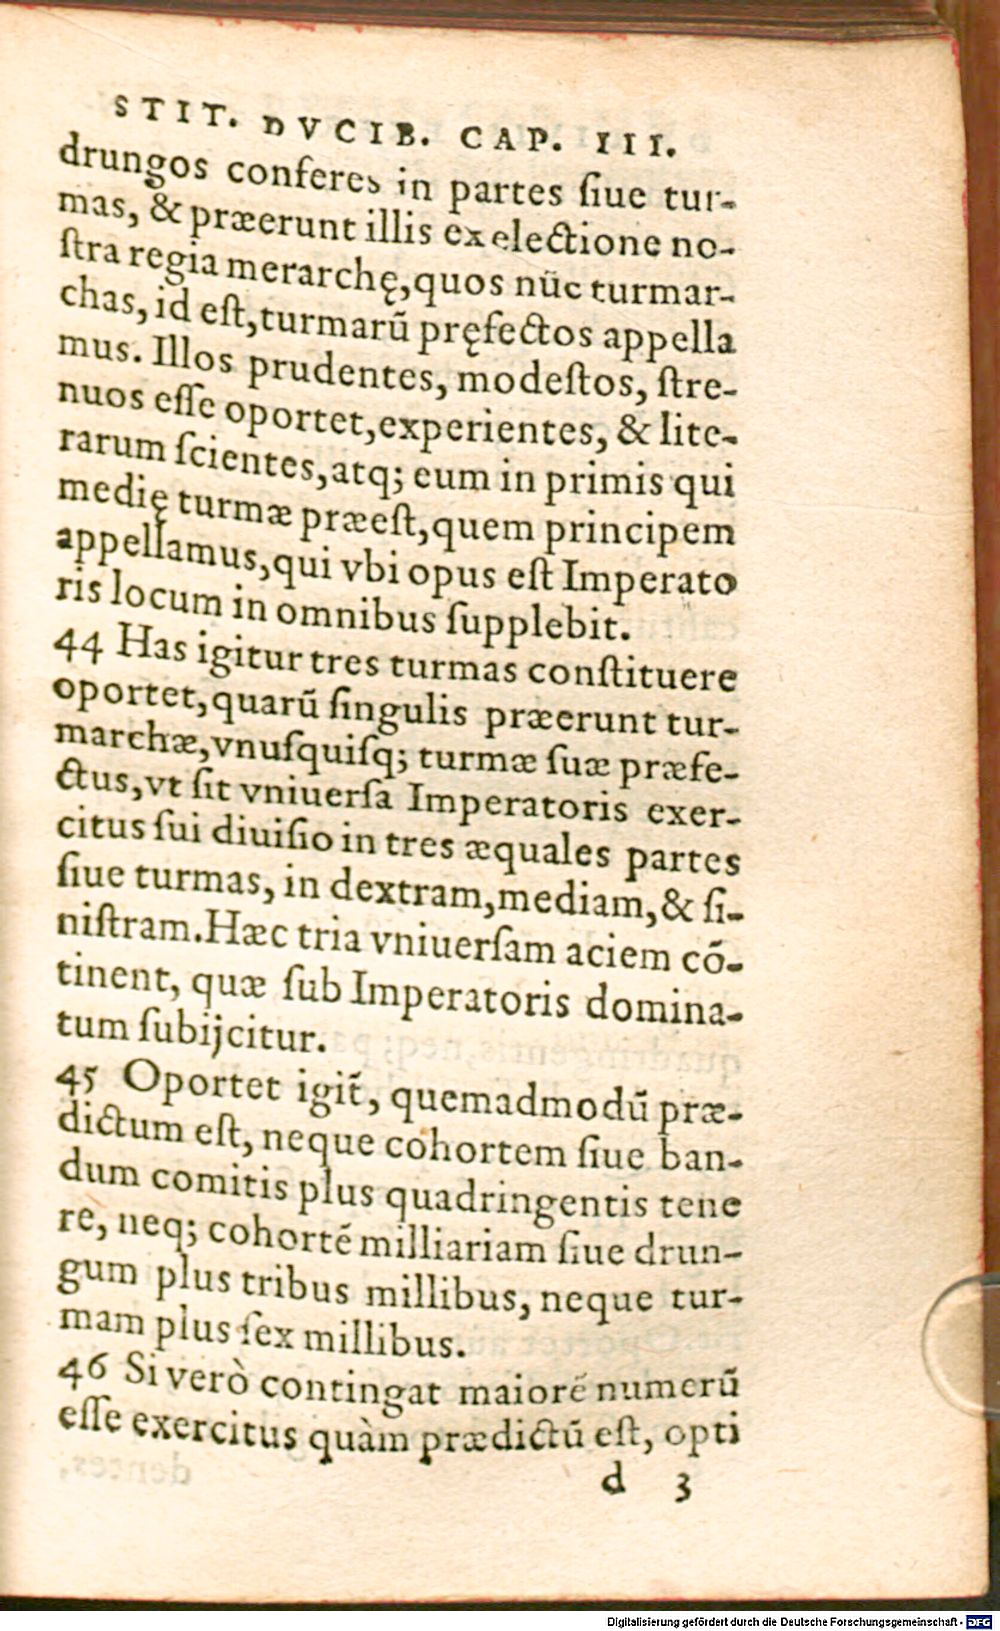 STIT. DVCIB. CAP. III.
drungos conferes in partes ſiue tur-
mas, & præerunt illis ex electione no-
ſtra regia merarchę, quos nūc turmar-
chas, id eſt, turmarū pręfectos appella
mus. Illos prudentes, modeſtos, ſtre-
nuos eſſe oportet, experientes, & lite-
rarum ſcientes, atq; eum in primis qui
medię turmæ præeſt, quem principem
appellamus, qui vbi opus eſt Imperato
ris locum in omnibus ſupplebit.
44 Has igitur tres turmas conſtituere
oportet, quarū ſingulis præerunt tur-
marchæ, vnuſquiſq; turmæ ſuæ præfe-
ctus, vt ſit vniuerſa Imperatoris exer-
citus ſui diuiſio in tres æquales partes
ſiue turmas, in dextram, mediam, & ſi-
niſtram. Hæc tria vniuerſam aciem cō-
tinent, quæ ſub Imperatoris domina-
tum ſubijcitur.
45 Oportet igit̃, quemadmodū præ-
dictum eſt, neque cohortem ſiue ban-
dum comitis plus quadringentis tene
re, neq; cohortē milliariam ſiue drun-
gum plus tribus millibus, neque tur-
mam plus ſex millibus.
46 Si verò contingat maiorē numerū
eſſe exercitus quàm prædictū eſt, opti
d 3
Digitalisierung gefördert durch die Deutsche Forschungsgemeinschaft - DFG